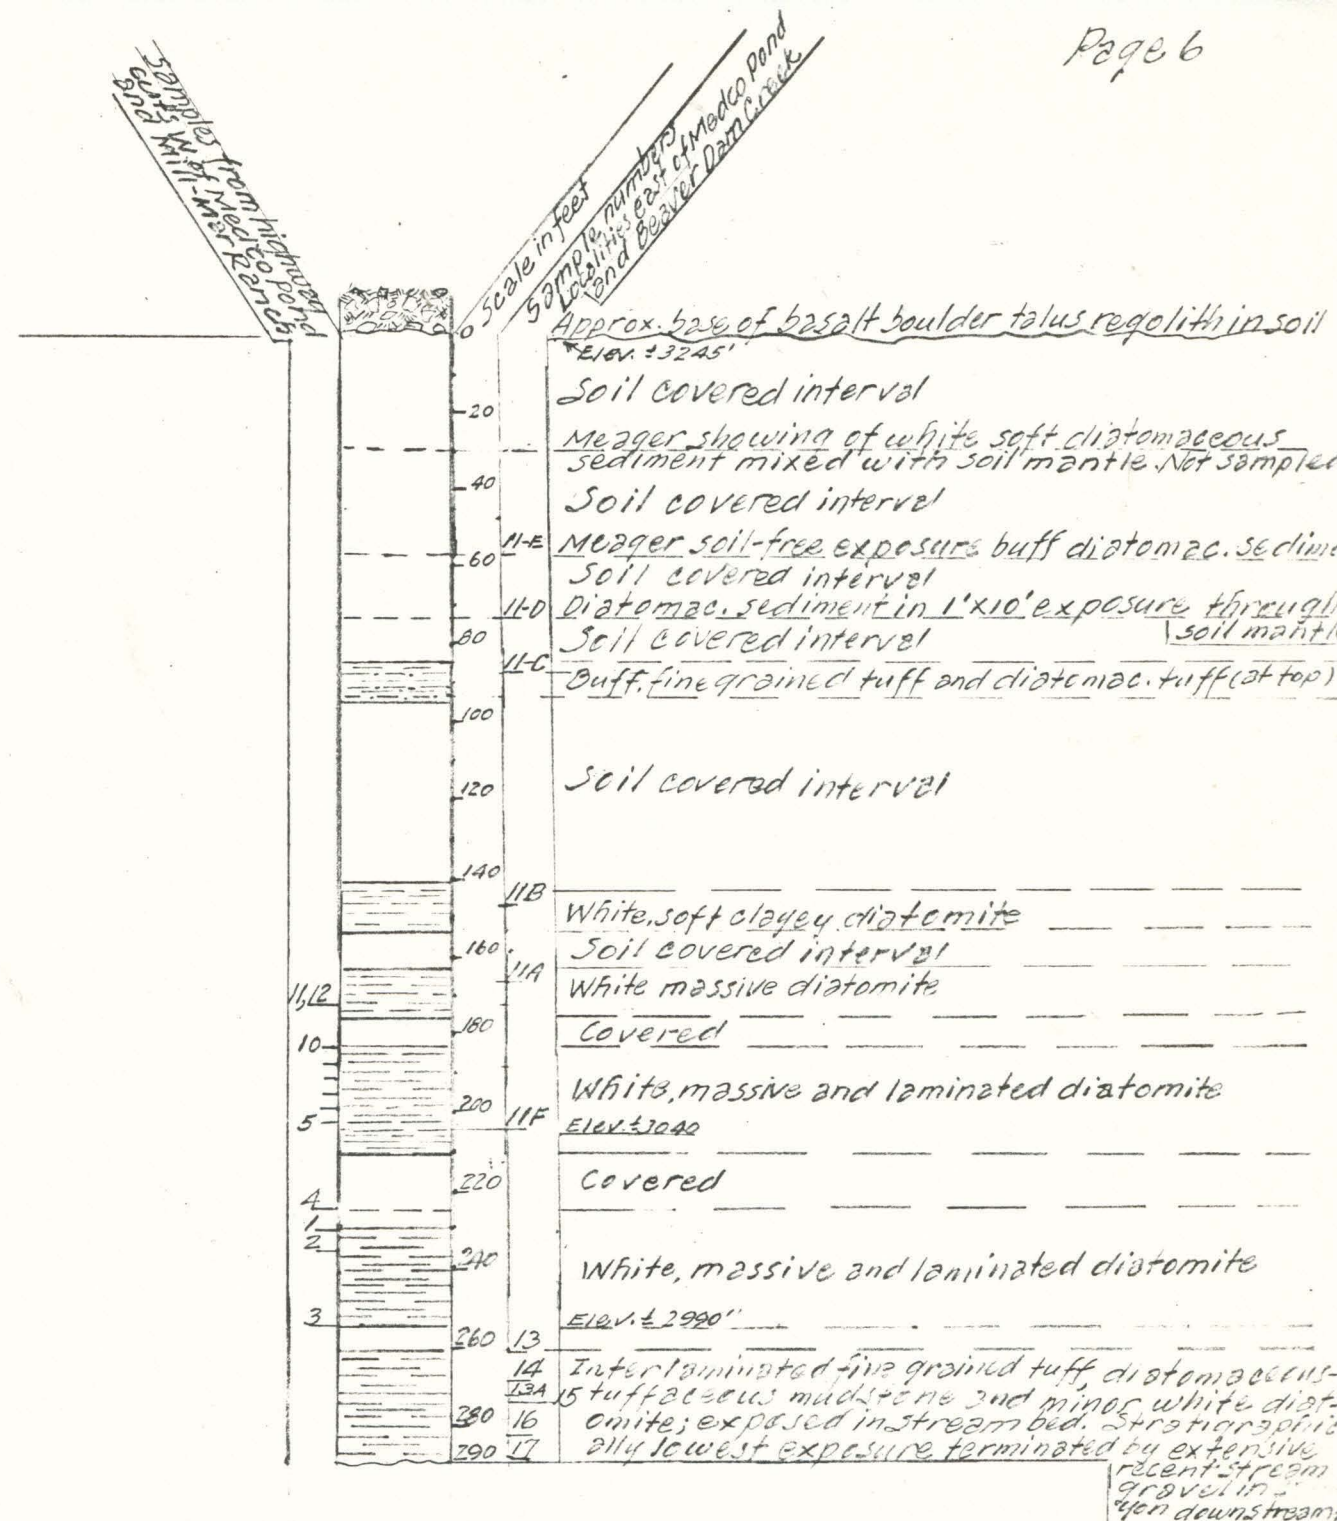 Page 6
Samples from highway
cuts W. of Medco pond
and Mill-Mar Ranch
Scale in feet
Sample numbers
Localities east of Medco pond
and Beaver Dam Creek
0
Approx. base of basalt boulder talus regolith in soil
Elev. ±3245'
Soil covered interval
20
Meager showing of white soft diatomaceous
sediment mixed with soil mantle. Not sampled
40
Soil covered interval
11-E Meager soil-free exposure buff diatomac. sedime
60
Soil covered interval
11-D Diatomac. sediment in 1'x10' exposure through
soil mantle
80
Soil covered interval
11-C
Buff, fine grained tuff and diatomac. tuff (at top)
100
Soil covered interval
120
140
11B
White, soft clayey diatomite
160
Soil covered interval
11A
White massive diatomite
11,12
180
Covered
10
White, massive and laminated diatomite
200
5
11F
Elev. ±3040
220
Covered
4
1
2
240
White, massive and laminated diatomite
3
Elev. ± 2990"
260 13
14 Interlaminated fine grained tuff, diatomaceous-
13A 15 tuffaceous mudstone and minor white diat-
280 16 omite; exposed in stream bed. Stratigraphic
290 17 ally lowest exposure terminated by extensive
recent stream
gravel in
yon downstream